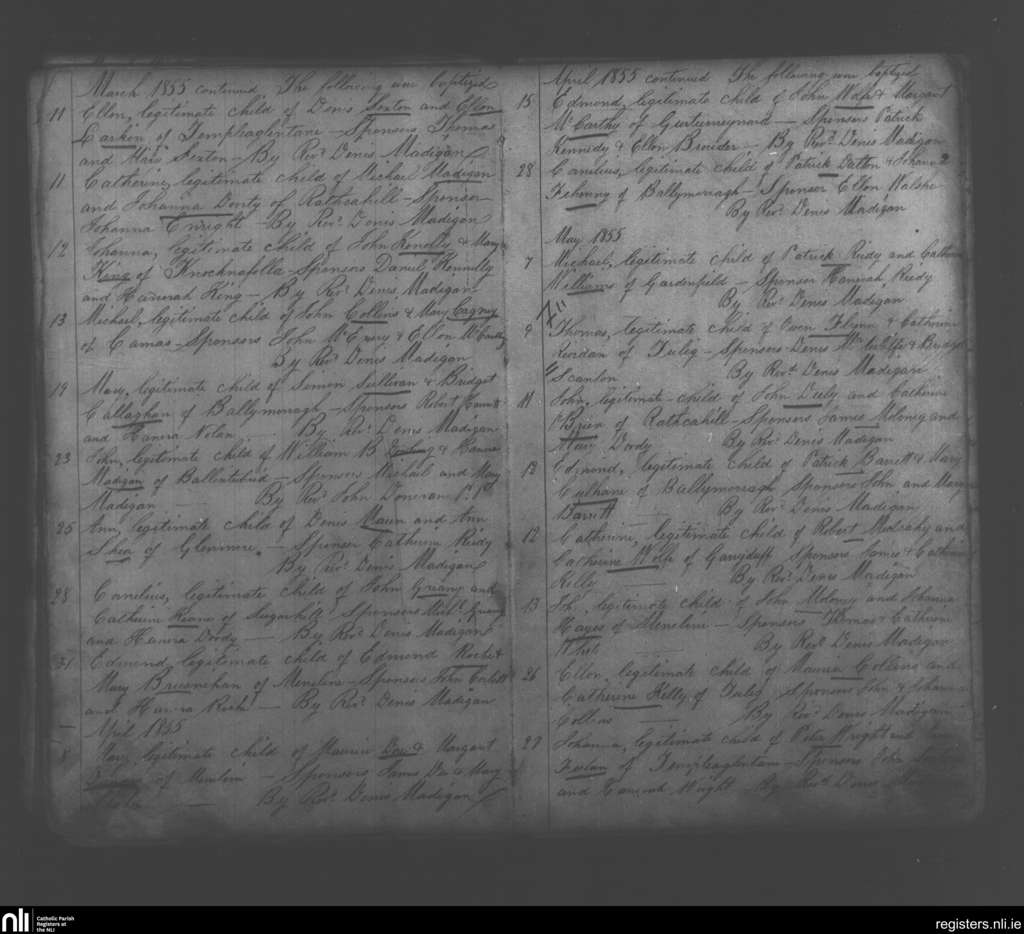 March 1855 continued The following were baptized
11 Ellen, legitimate child of Denis Sexton and Ellen
Larkin of Templeaglentane - Sponsors Thomas
and Sexton - By Revd. Denis Madigan
11 Catherine, legitimate child of Michael Madigan
and Johanna Dorty of Rathcahill - Sponsor
Johanna Enright - By Revd. Denis Madigan
12 Johanna, legitimate child of John Konolly & Mary
King of Knocknafolla - Sponsors Daniel Konnolly
and Hannorah King - By Revd. Denis Madigan
13 Michael, legitimate child of John Collins & Mary Cagney
of Camas - Sponsors John McEniry & Ellen McCarthy
By Revd Denis Madigan
19 Mary, legitimate child of Simon Sullivan & Bridget
Callaghan of Ballymoragh - Sponsors Robert
and Hanora Nolan By Revd. Denis Madigan
23 John, legitimate child of William B & Hanora
Madigan of - Sponsors Michael and Mary
Madigan By Revd. John Donovan P.P.
25 Ann, legitimate child of Denis and Ann
Shea of Glenmore. - Sponsor Catherine Reidy
By Revd. Denis Madigan
28 Cornelius, legitimate child of John Greany and
Catherine Keane of Sugarhill Sponsors Michl. Greany
and Hanora Doody - By Revd. Denis Madigan
31 Edmund, legitimate child of Edmond Roche &
Mary of - Sponsors John Corbett
and Hanora Roche - By Revd. Denis Madigan
April 1855
8 Mary, legitimate child of Maurice & Margaret
of - Sponsors James & Mary
By Revd. Denis Madigan
April 1855 continued The following were baptized
15 Edmond, legitimate child of John & Margaret
McCarthy of - Sponsors Patrick
Kennedy & Ellen Browder - By Revd. Denis Madigan
28 Cornelius, legitimate child of Patrick Dalton & Johanna
of Ballymoragh - Sponsor Ellen Walshe
By Revd. Denis Madigan
May 1855
7 Michael, legitimate child of Patrick Reidy and Catherine
Williams of Gardenfield - Sponsor Hannah Reidy
By Revd Denis Madigan
9 Thomas, legitimate child of Owen Flynn & Catherine
Reridan of Tulig - Sponsors Denis & Bridget
Scanlon By Revd. Denis Madigan
11 John, legitimate child of John Deely and Catherine
O'Brien of Rathcahill - Sponsors James Moloney and
Mary Doody By Revd. Denis Madigan
12 Edmond, legitimate child of Patrick Barrett & Mary
Culhane of Ballymoragh Sponsors John and
Barrett - By Revd. Denis Madigan
12 Catherine, legitimate child of Robert Mulcahy and
Catherine Wolfe of Sponsors James & Catherine
Kelly By Revd. Denis Madigan
13 Joh, legitimate child of John Moloney and Johanna
Hayes of Meneline - Sponsors Thomas & Catherine
By Revd. Denis Madigan
26 Ellen, legitimate child of Maurice Collins and
Catherine Kelly of Tulig Sponsors John & Johanna
Collins By Revd. Denis Madigan
27 Johanna, legitimate child of Peter Wright and
of Templeaglentan - Sponsors John
and Hanorah Wright - By Revd Denis
nli Catholic Parish
Registers at
the NLI
registers.nli.ie